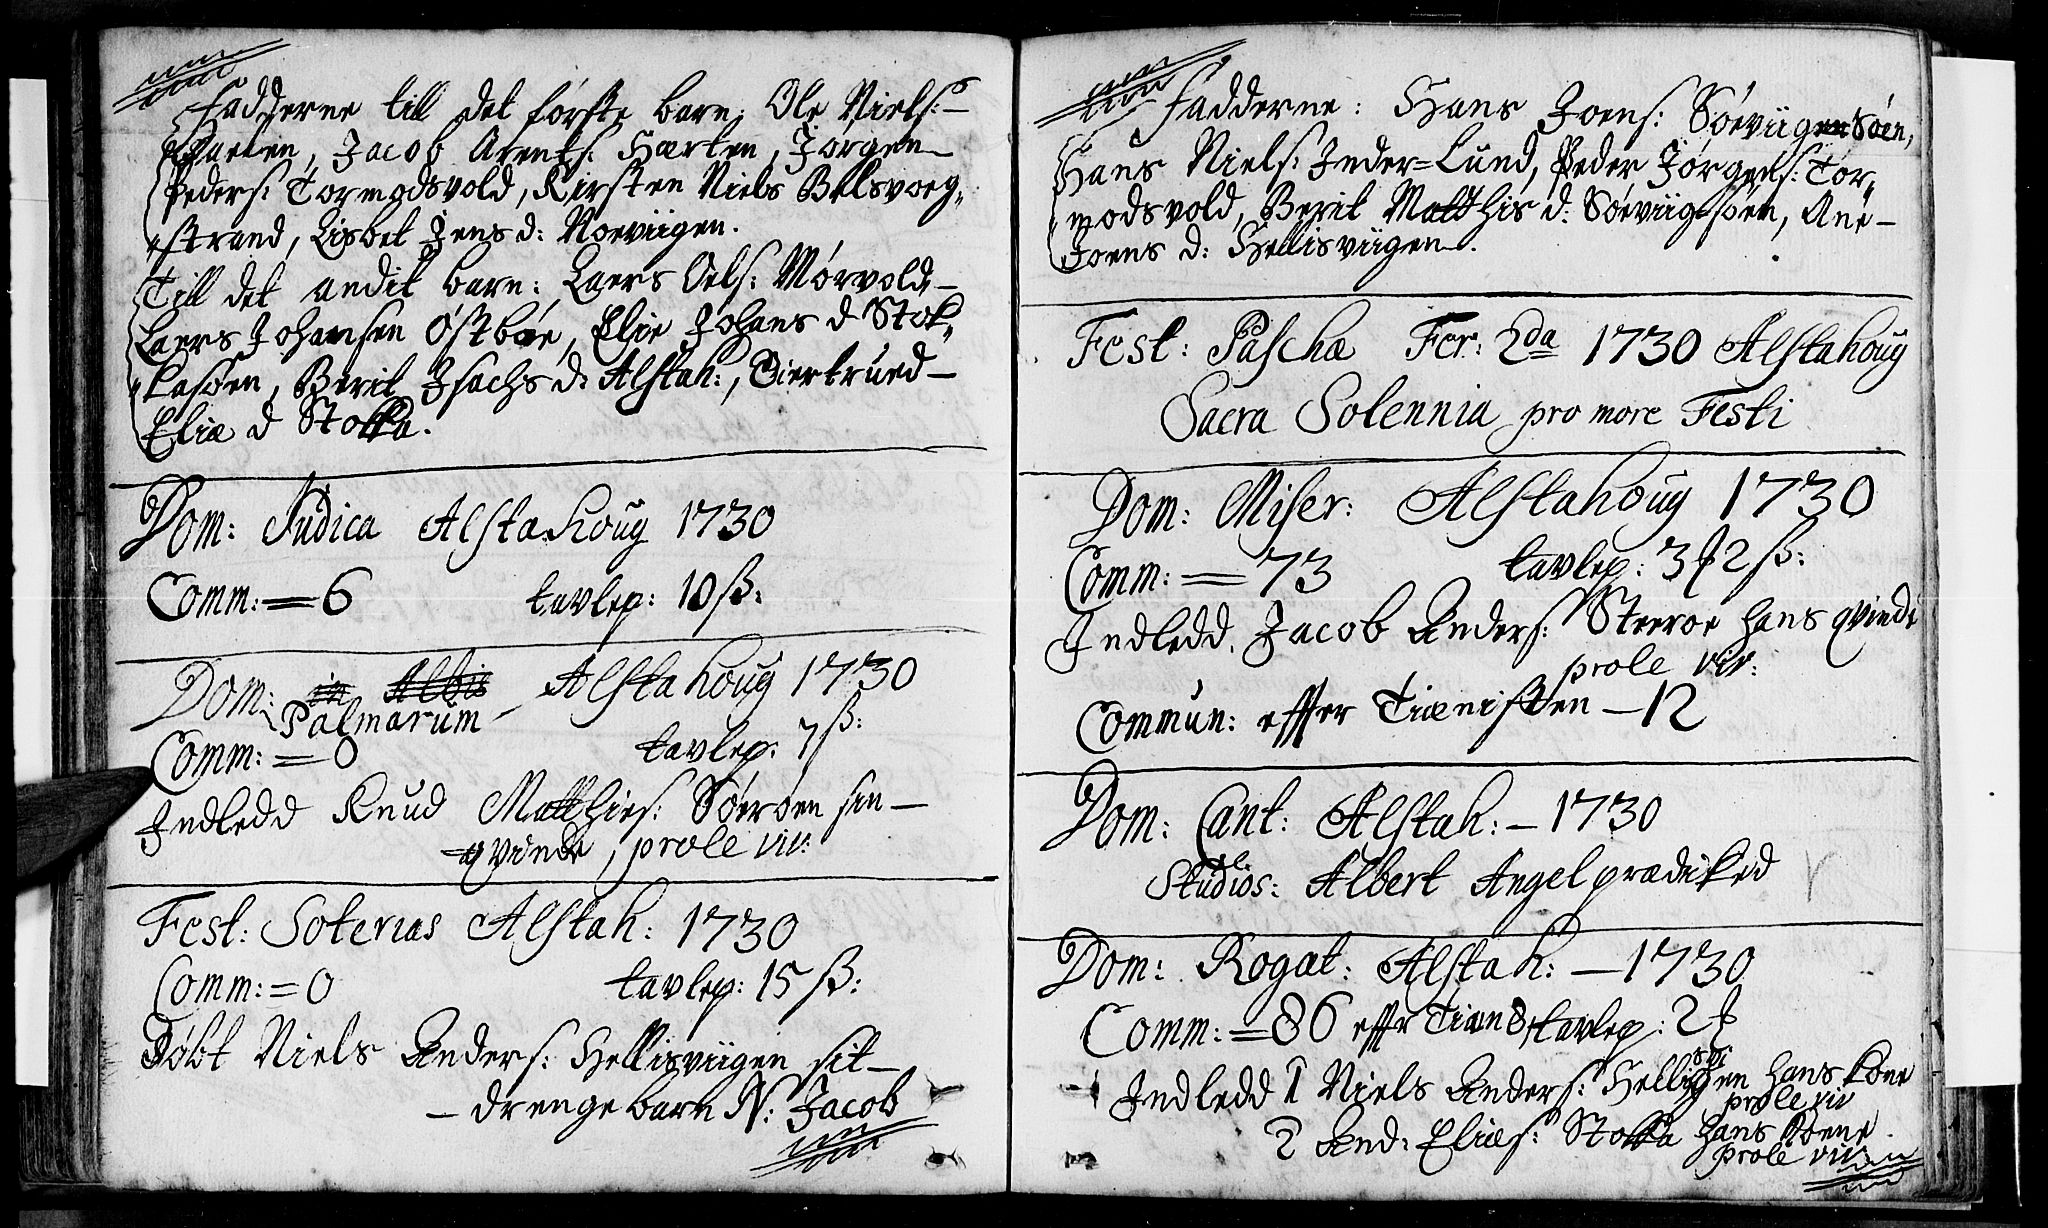 Fadderne till det første barn: Ole Niels:
Jacob Arents: Harten, Jørgen
Peders: Tormodsvold, Kirsten Niels Belsvoeg-
strand, Lisbet Jens d: Norviigen.
Till det andet barn: Laers Oels: Mørvold,
Laers Johansen Østbøe, Elie Johans d Stok-
kasøen, Berit Isachs d: Alstah:, Giertrued
Eliæ d Stokka.
Dom: Judica Alstahoug 1730
Comm: = 6 tavlep: 10 ß:
Dom: in Albis Alstahoug 1730
Palmarum
Comm: = 0 tavlep: 7 ß:
Indledd Knud Matthies: Søerøen sin
qvinde, prole viv:
Fest: Soterias Alstah: 1730
Comm: = 0 tavlep: 15 ß:
Døbt Niels Anders: Hellisviigen sit
drenge barn N: Jacob
Fadderne: Hans Joens: Søeviigen Søen,
Hans Niels: Inder=Lund, Peder Jørgens: Tor-
modsvold, Berit Matthis d: Søeviigsøen, Ane
Joens d: Hellisviigen.
Fest: Paschæ Fer: 2da 1730 Alstahoug
Sacra Solennia pro more Festi
Dom: Miser: Alstahoug 1730
Comm: = 73 tavlep: 3 2 ß:
Indledd. Jacob Anders: Steeroe hans qvinde
prole viv:
Commun: effter Tiænisten — 12
Dom: Cant: Alstah: — 1730
Studios: Albert Angel prædiked
Dom: Rogat: Alstah: — 1730
Comm: = 86 effr Tien 8 tavlep: 2
Indledd 1 Niels Anders: Hellisviigen hans kone
prole viv
2 And: Eliæs: Stokka hans Koene
prole viv